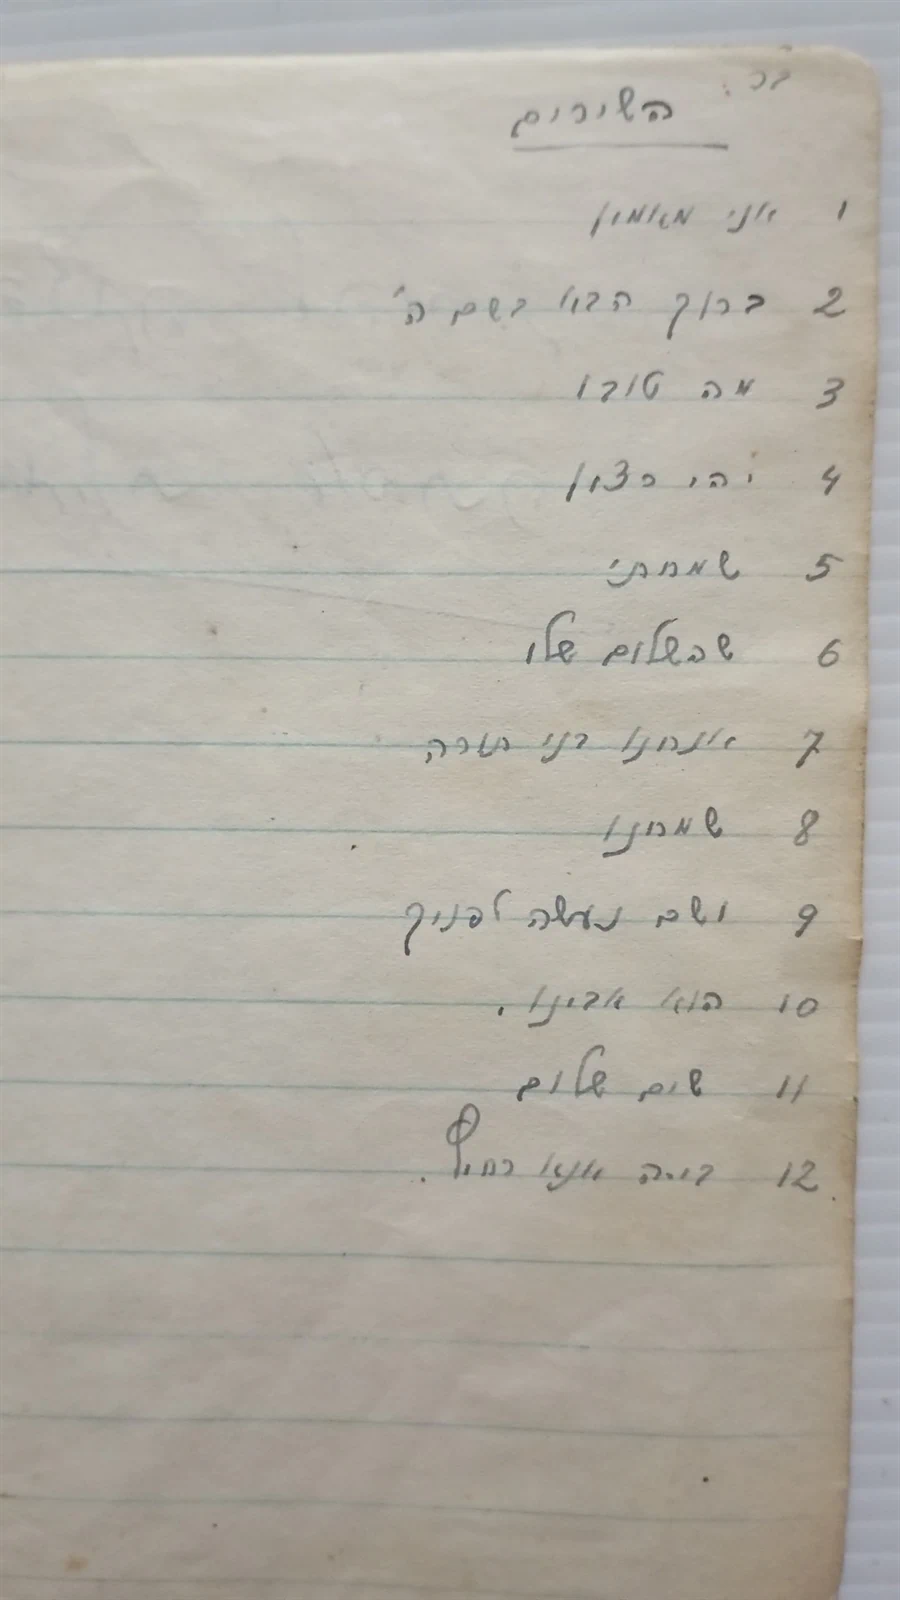 השירים
1 אני מאמין
2 ברוך הבא בשם ה'
3 מה טובו
4 יהי רצון
5 שמחתי
6 שהשלום שלו
7 אנחנו בני תורה
8 שמחנו
9 ושם נעשה לפניך
10 הוא אבינו.
11 שים שלום
12 ביה אנא רחיץ.